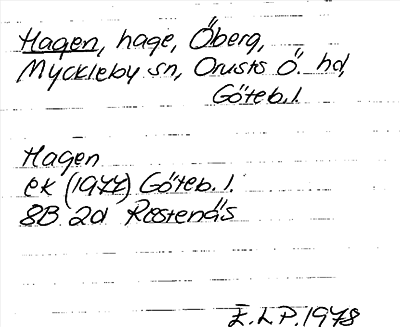 Hagen, hage, Öberg,
Myckleby sn, Orusts Ö. hd,
Göteb. l.
Hagen
ek (1977) Göteb. l.
8B 2d Rostenäs
E.L.P. 1978